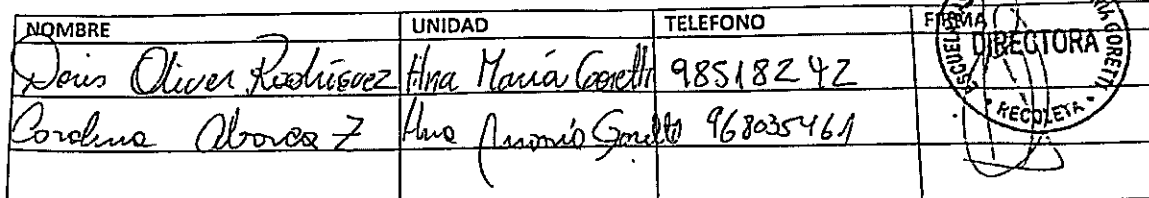 NOMBRE UNIDAD TELEFONO FIRMA
Doris Oliver Rodríguez Hna María Goretti 98518242
Carolina Abarca Z Hna Goretti 968035461
ESCUELA MARIA GORETTI
DIRECTORA
• RECOLETA •